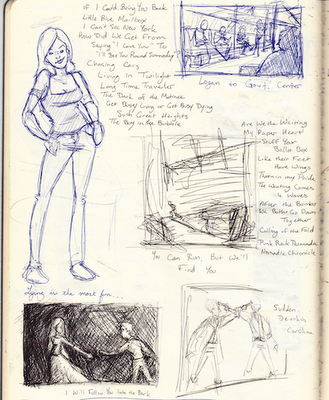 If I Could Bring You Back
Little Blue Mailbox
I Can't See New York
How Did We Get From
Saying "I Love You" To
"I'll See You Round Someday"?
Chasing Cars
Living In Twilight
Long Time Traveler
The Dark of the Matinee
Get Busy Living or Get Busy Dying
Such Great Heights
The Boy in the Bubble
Logan to Govt. Center
Are We the Waiting
My Paper Heart
Stuff Your
Ballot Box
Like their Feet
Have Wings
Thorn in my Pride
The Wanting Comes
in Waves
After the Bombs
We Both Go Down
Together
Calling of the Fold
Punk Rock
Nomadic Chronicle
You Can Run, But We'll
Find You
dying in the most fun...
Sudden
Death in
Carolina
I Will Follow You Into the Dark